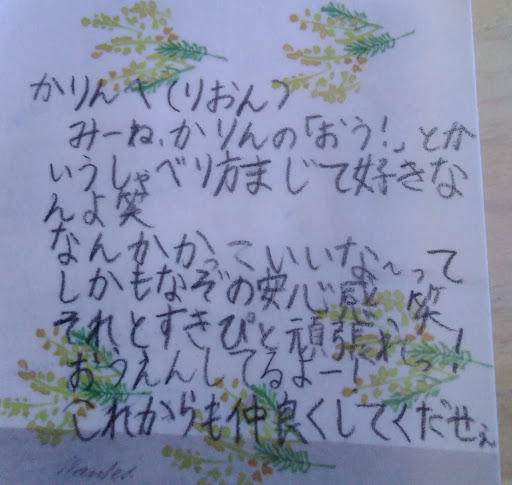 かりんへ(りおん)
みーね、かりんの「おう!」とか
いうしゃべり方まじで好きな
んよ笑
なんかかっこいいな~って
しかもなぞの安心感 笑
それとすきぴと頑張れっ!
おうえんしてるよー!
これからも仲良くしてくだせぇ